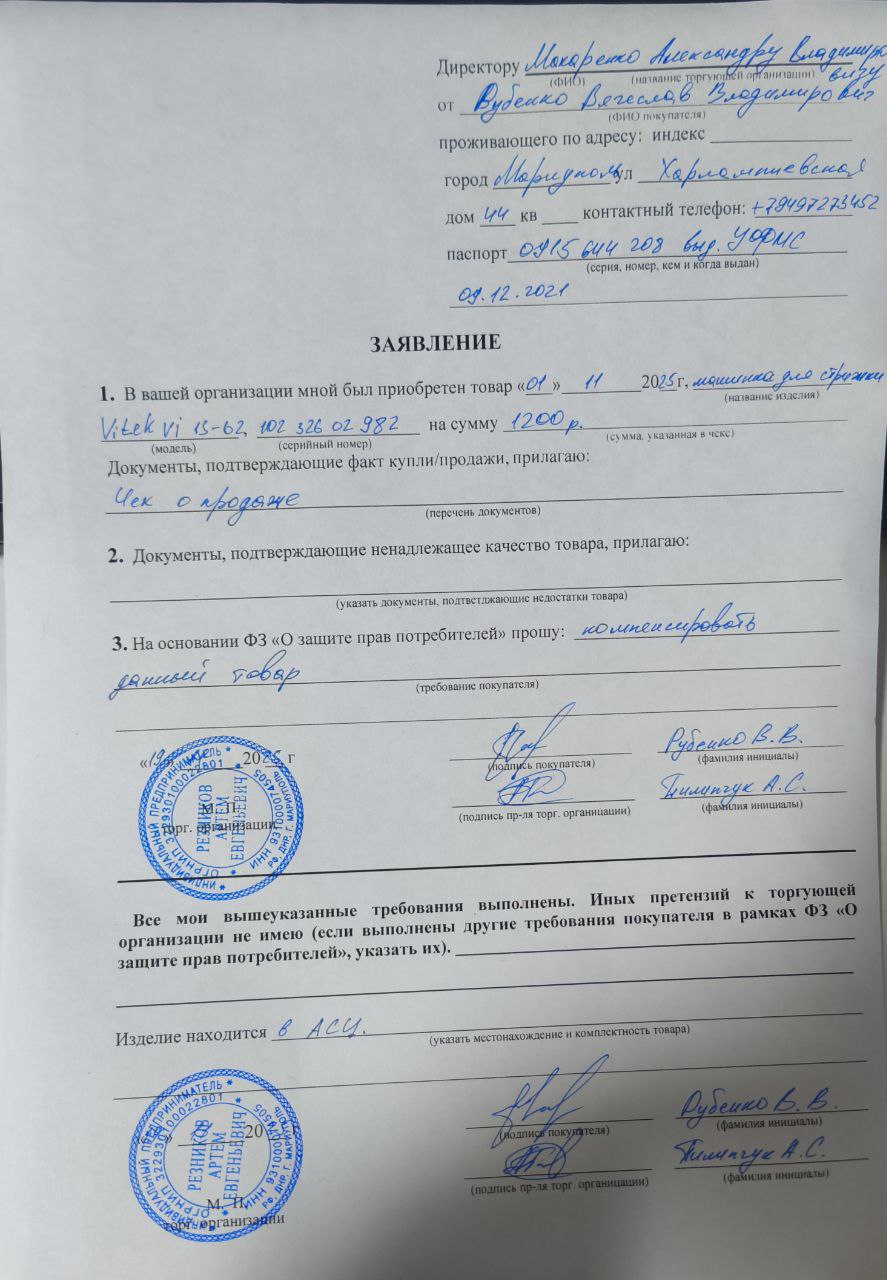 Директору Макаренко Александру Владимиро
(ФИО) (название торгующей организации) вичу
от Рубенко Вячеслав Владимирович
(ФИО покупателя)
проживающего по адресу: индекс
город Мариуполь ул Харлампиевская
дом 44 кв контактный телефон: +79497273452
паспорт 0915 644 208 выд. УФМС
(серия, номер, кем и когда выдан)
09.12.2021
ЗАЯВЛЕНИЕ
1. В вашей организации мной был приобретен товар «01» 11 2025г, машинка для стрижки
(название изделия)
Vitek vi 13-62, 102 326 02 982 на сумму 1200 р.
(модель) (серийный номер) (сумма, указанная в чеке)
Документы, подтверждающие факт купли/продажи, прилагаю:
Чек о продаже
(перечень документов)
2. Документы, подтверждающие ненадлежащее качество товара, прилагаю:
(указать документы, подтветлжающие недостатки товара)
3. На основании ФЗ «О защите прав потребителей» прошу: компенсировать
данный товар
(требование покупателя)
«19» 2025 г
(подпись покупателя) Рубенко В. В.
(фамилия инициалы)
Пилипчук А.С.
(подпись пр-ля торг. органицации) (фамилия инициалы)
М. П.
торг. организации
ИНДИВИДУАЛЬНЫЙ ПРЕДПРИНИМАТЕЛЬ
ОГРНИП 322930100022801
РЕЗНИКОВ
АРТЕМ
ЕВГЕНЬЕВИЧ
РФ, ДНР, Г. МАРИУПОЛЬ
Все мои вышеуказанные требования выполнены. Иных претензий к торгующей
организации не имею (если выполнены другие требования покупателя в рамках ФЗ «О
защите прав потребителей», указать их).
Изделие находится в АСЦ.
(указать местонахождение и комплектность товара)
» 20
(подпись покупателя) Рубенко В. В.
(фамилия инициалы)
Пилипчук А.С.
(подпись пр-ля торг. органицации) (фамилия инициалы)
М. П.
торг. организации
ИНДИВИДУАЛЬНЫЙ ПРЕДПРИНИМАТЕЛЬ
ОГРНИП 322930100022801
РЕЗНИКОВ
АРТЕМ
ЕВГЕНЬЕВИЧ
РФ, ДНР, Г. МАРИУПОЛЬ